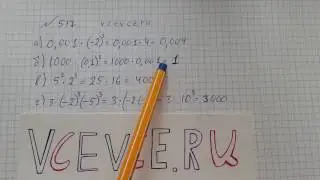 № 517 vcevce.ru
а) 0,001 · (-2)² = 0,001 · 4 = 0,004
б) 1000 · (0,1)³ = 1000 · 0,001 = 1
в) 5² · 2⁴ = 25 · 16 = 400
г) 3 · (-2)³(-5)³ = 3 · (-2 = 3 · 10³ = 3000
VCEVCE.RU